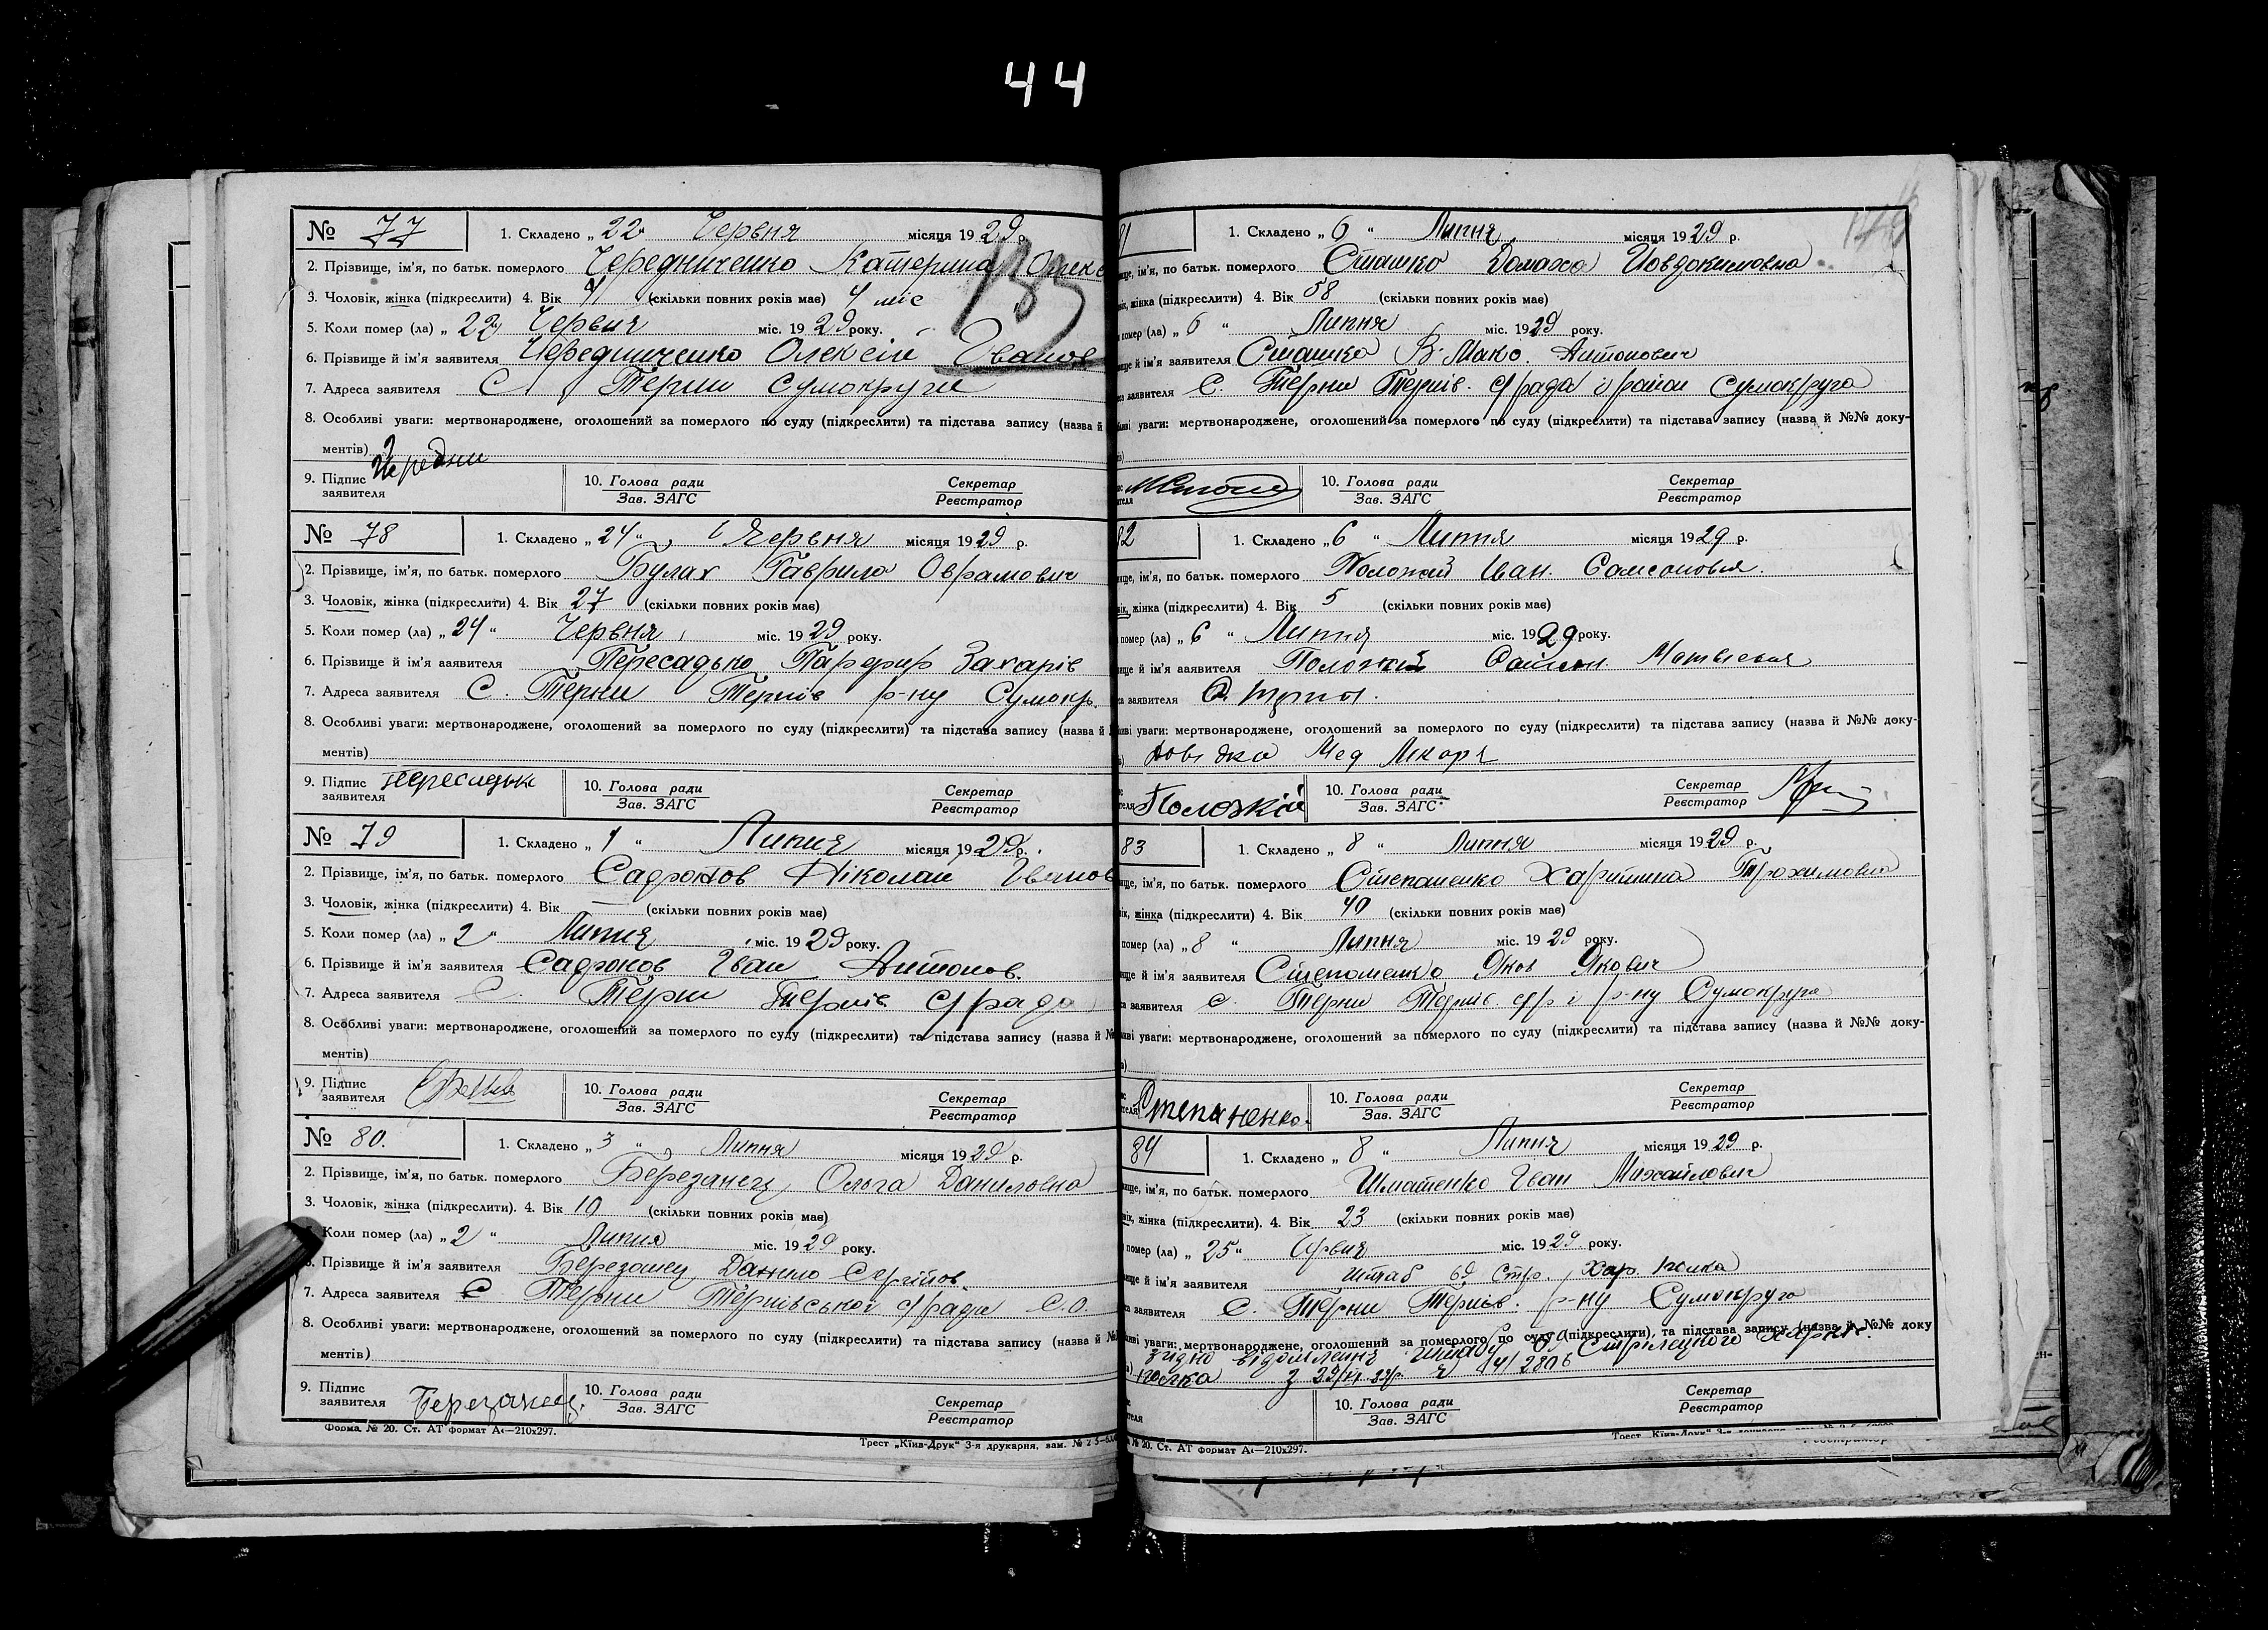 44
№ 77
1. Складено „ 22 " Червня місяця 1929 р.
133
2. Прізвище, ім'я, по батьк. померлого Чередниченко Катерина Олекс
3. Чоловік, жінка (підкреслити) 4. Вік (скільки повних років має) 4 міс
5. Коли помер (ла) „ 22 " Червня міс. 1929 року.
6. Прізвище й ім'я заявителя Чередниченко Олексій Іванов
7. Адреса заявителя С Терни Сумокруги
8. Особливі уваги: мертвонароджене, оголошений за померлого по суду (підкреслити) та підстава запису (назва й
ментів)
9. Підпис заявителя Чередни
10. Голова ради Зав. ЗАГС
Секретар Реєстратор
№ 78
1. Складено „ 24 " Червня місяця 1929 р.
2. Прізвище, ім'я, по батьк. померлого Булах Гаврило Оврамович
3. Чоловік, жінка (підкреслити) 4. Вік 27 (скільки повних років має)
5. Коли помер (ла) „ 24 " Червня міс. 1929 року.
6. Прізвище й ім'я заявителя Пересадько Парфир Захарів
7. Адреса заявителя С. Терни Тернів р-ну Сумокр.
8. Особливі уваги: мертвонароджене, оголошений за померлого по суду (підкреслити) та підстава запису (назва й
ментів)
9. Підпис заявителя
10. Голова ради Зав. ЗАГС
Секретар Реєстратор
№ 79
1. Складено „ 1 " Липня місяця 1929 р.
2. Прізвище, ім'я, по батьк. померлого Сафонов Ніколай Іванов
3. Чоловік, жінка (підкреслити) 4. Вік — (скільки повних років має)
5. Коли помер (ла) „ 2 " Липня міс. 1929 року.
6. Прізвище й ім'я заявителя Сафонов Іван Антонов.
7. Адреса заявителя С. Терни Тернів с/рада
8. Особливі уваги: мертвонароджене, оголошений за померлого по суду (підкреслити) та підстава запису (назва й №
ментів)
9. Підпис заявителя
10. Голова ради Зав. ЗАГС
Секретар Реєстратор
№ 80.
1. Складено „ 3 " Липня місяця 1929 р.
2. Прізвище, ім'я, по батьк. померлого Березанец Ольга Даниловна
3. Чоловік, жінка (підкреслити). 4. Вік 10 (скільки повних років має)
Коли помер (ла) „ 2 " Липня міс. 1929 року.
Прізвище й ім'я заявителя Березанец Данило Сергійов.
7. Адреса заявителя С Терни Тернівської с/ради С.О.
8. Особливі уваги: мертвонароджене, оголошений за померлого по суду (підкреслити) та підстава запису (назва й №
ментів)
9. Підпис заявителя Березанец.
10. Голова ради Зав. ЗАГС
Секретар Реєстратор
Форма. № 20. Ст. АТ формат А4—210х297.
Трест „Київ-Друк" 3-я друкарня, зам. №
81
1. Складено „ 6 " Липня місяця 1929 р.
ім'я, по батьк. померлого Сташко Домаха Йовдокимовна
жінка (підкреслити) 4. Вік 58 (скільки повних років має)
помер (ла) „ 6 " Липня міс. 1929 року.
й ім'я заявителя Сташко Антонович
заявителя С. Терни Тернів. с/рада і район Сумокруга
уваги: мертвонароджене, оголошений за померлого по суду (підкреслити) та підстава запису (назва й №№ доку-
10. Голова ради Зав. ЗАГС
Секретар Реєстратор
82
1. Складено „ 6 " Липня місяця 1929 р.
ім'я, по батьк. померлого Положий Іван Самсонович
жінка (підкреслити) 4. Вік 5 (скільки повних років має)
помер (ла) „ 6 " Липня міс. 1929 року.
й ім'я заявителя Положий Самсон Матвієвич
заявителя С. Терни.
уваги: мертвонароджене, оголошений за померлого по суду (підкреслити) та підстава запису (назва й №№ доку-
Довідка Мед Лікаря
Положий
10. Голова ради Зав. ЗАГС
Секретар Реєстратор
83
1. Складено „ 8 " Липня місяця 1929 р.
ім'я, по батьк. померлого Степаненко Харитина Трохимовна
жінка (підкреслити) 4. Вік 40 (скільки повних років має)
помер (ла) „ 8 " Липня міс. 1929 року.
й ім'я заявителя Степаненко Яков Якович
заявителя С. Терни Тернів. с/р і р-ну Сумокруга
уваги: мертвонароджене, оголошений за померлого по суду (підкреслити) та підстава запису (назва й №№ доку-
Степаненко.
10. Голова ради Зав. ЗАГС
Секретар Реєстратор
84
1. Складено „ 8 " Липня місяця 1929 р.
ім'я, по батьк. померлого Шматенко Іван Михайлович
жінка (підкреслити). 4. Вік 23 (скільки повних років має)
помер (ла) „ 25 " Червня міс. 1929 року.
й ім'я заявителя Штаб 69 Стр. Хар. полка
заявителя С. Терни Тернів. р-ну Сумокруга
уваги: мертвонароджене, оголошений за померлого по суду (підкреслити), та підстава запису (назва й №№ доку
згідно відомлення Штабу 69 Стрілецького Харків.
полка з
10. Голова ради Зав. ЗАГС
Секретар Реєстратор
№ 20. Ст. АТ формат А4—210х297.